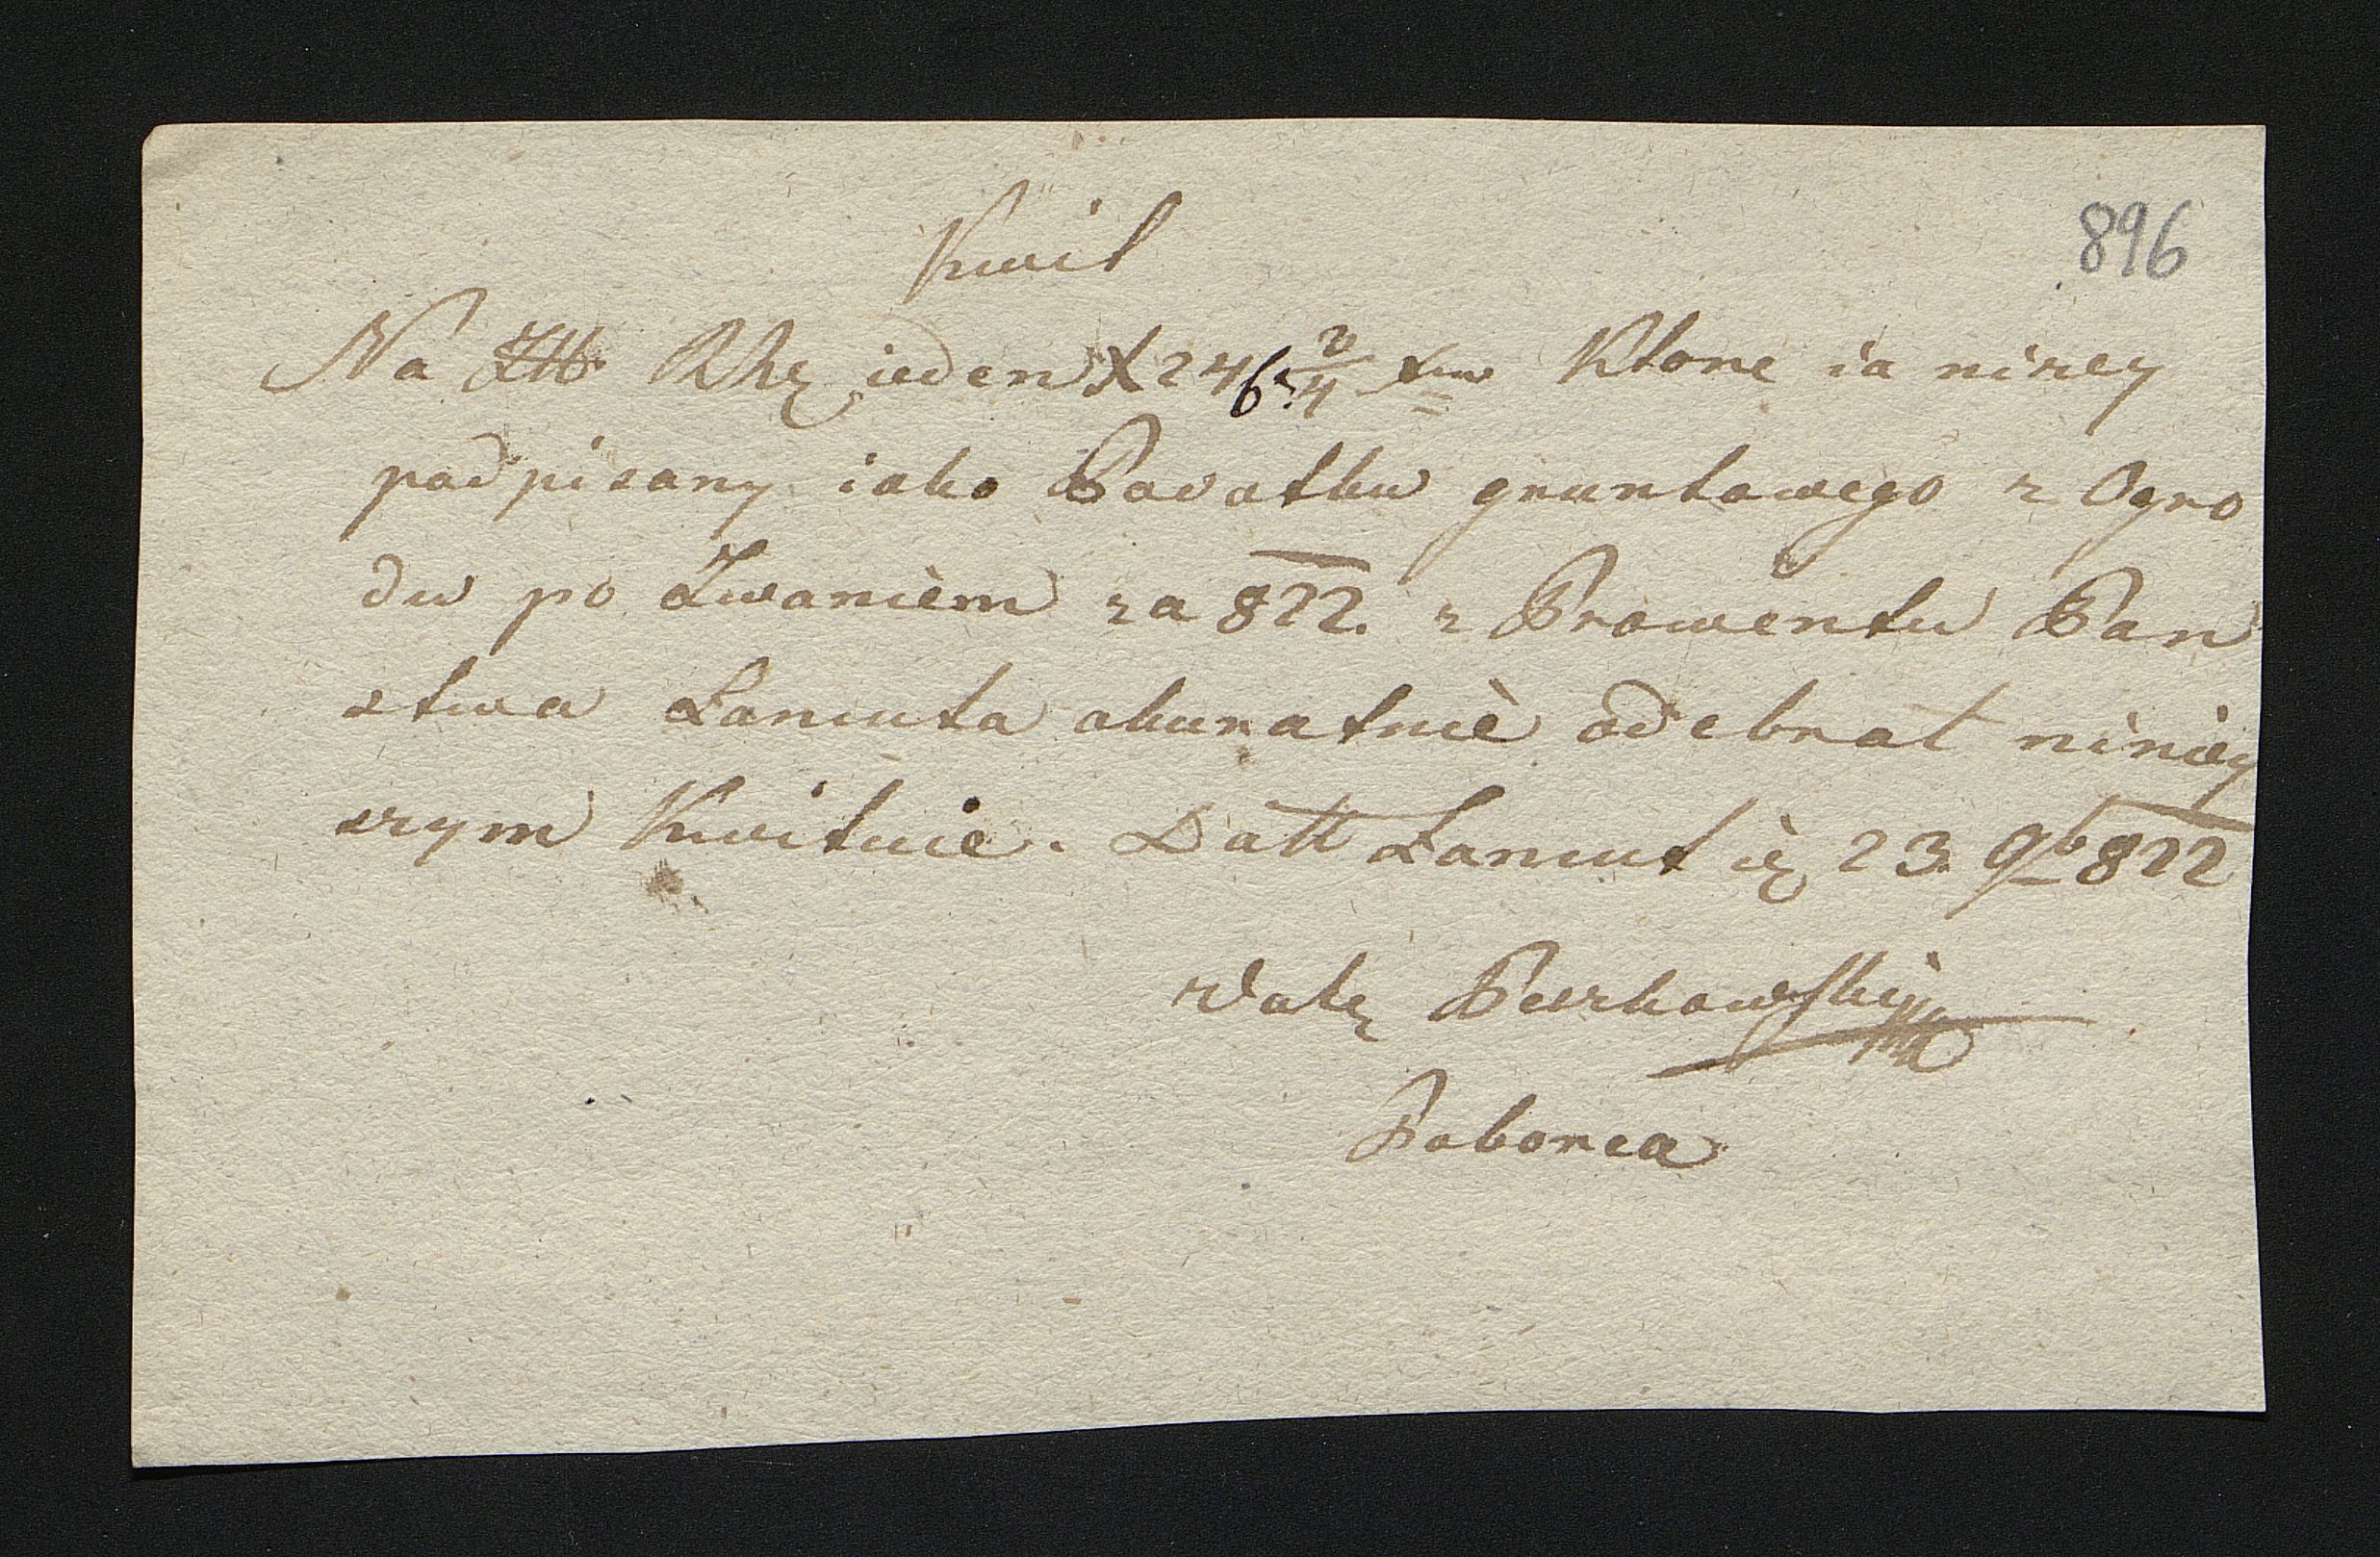 Kwit
896
Na Rhę ieden X 246 2/4 xrow Ktore ia nizey
podpisany iako Podatku gruntowego z Ogro
du po Iwaniem za 822. z Prowentu Pan
stwa Lancuta akuratnie odebrał ninięy
szym Kwituie. Datt Lancut ię 23. 9b 822
Poborca